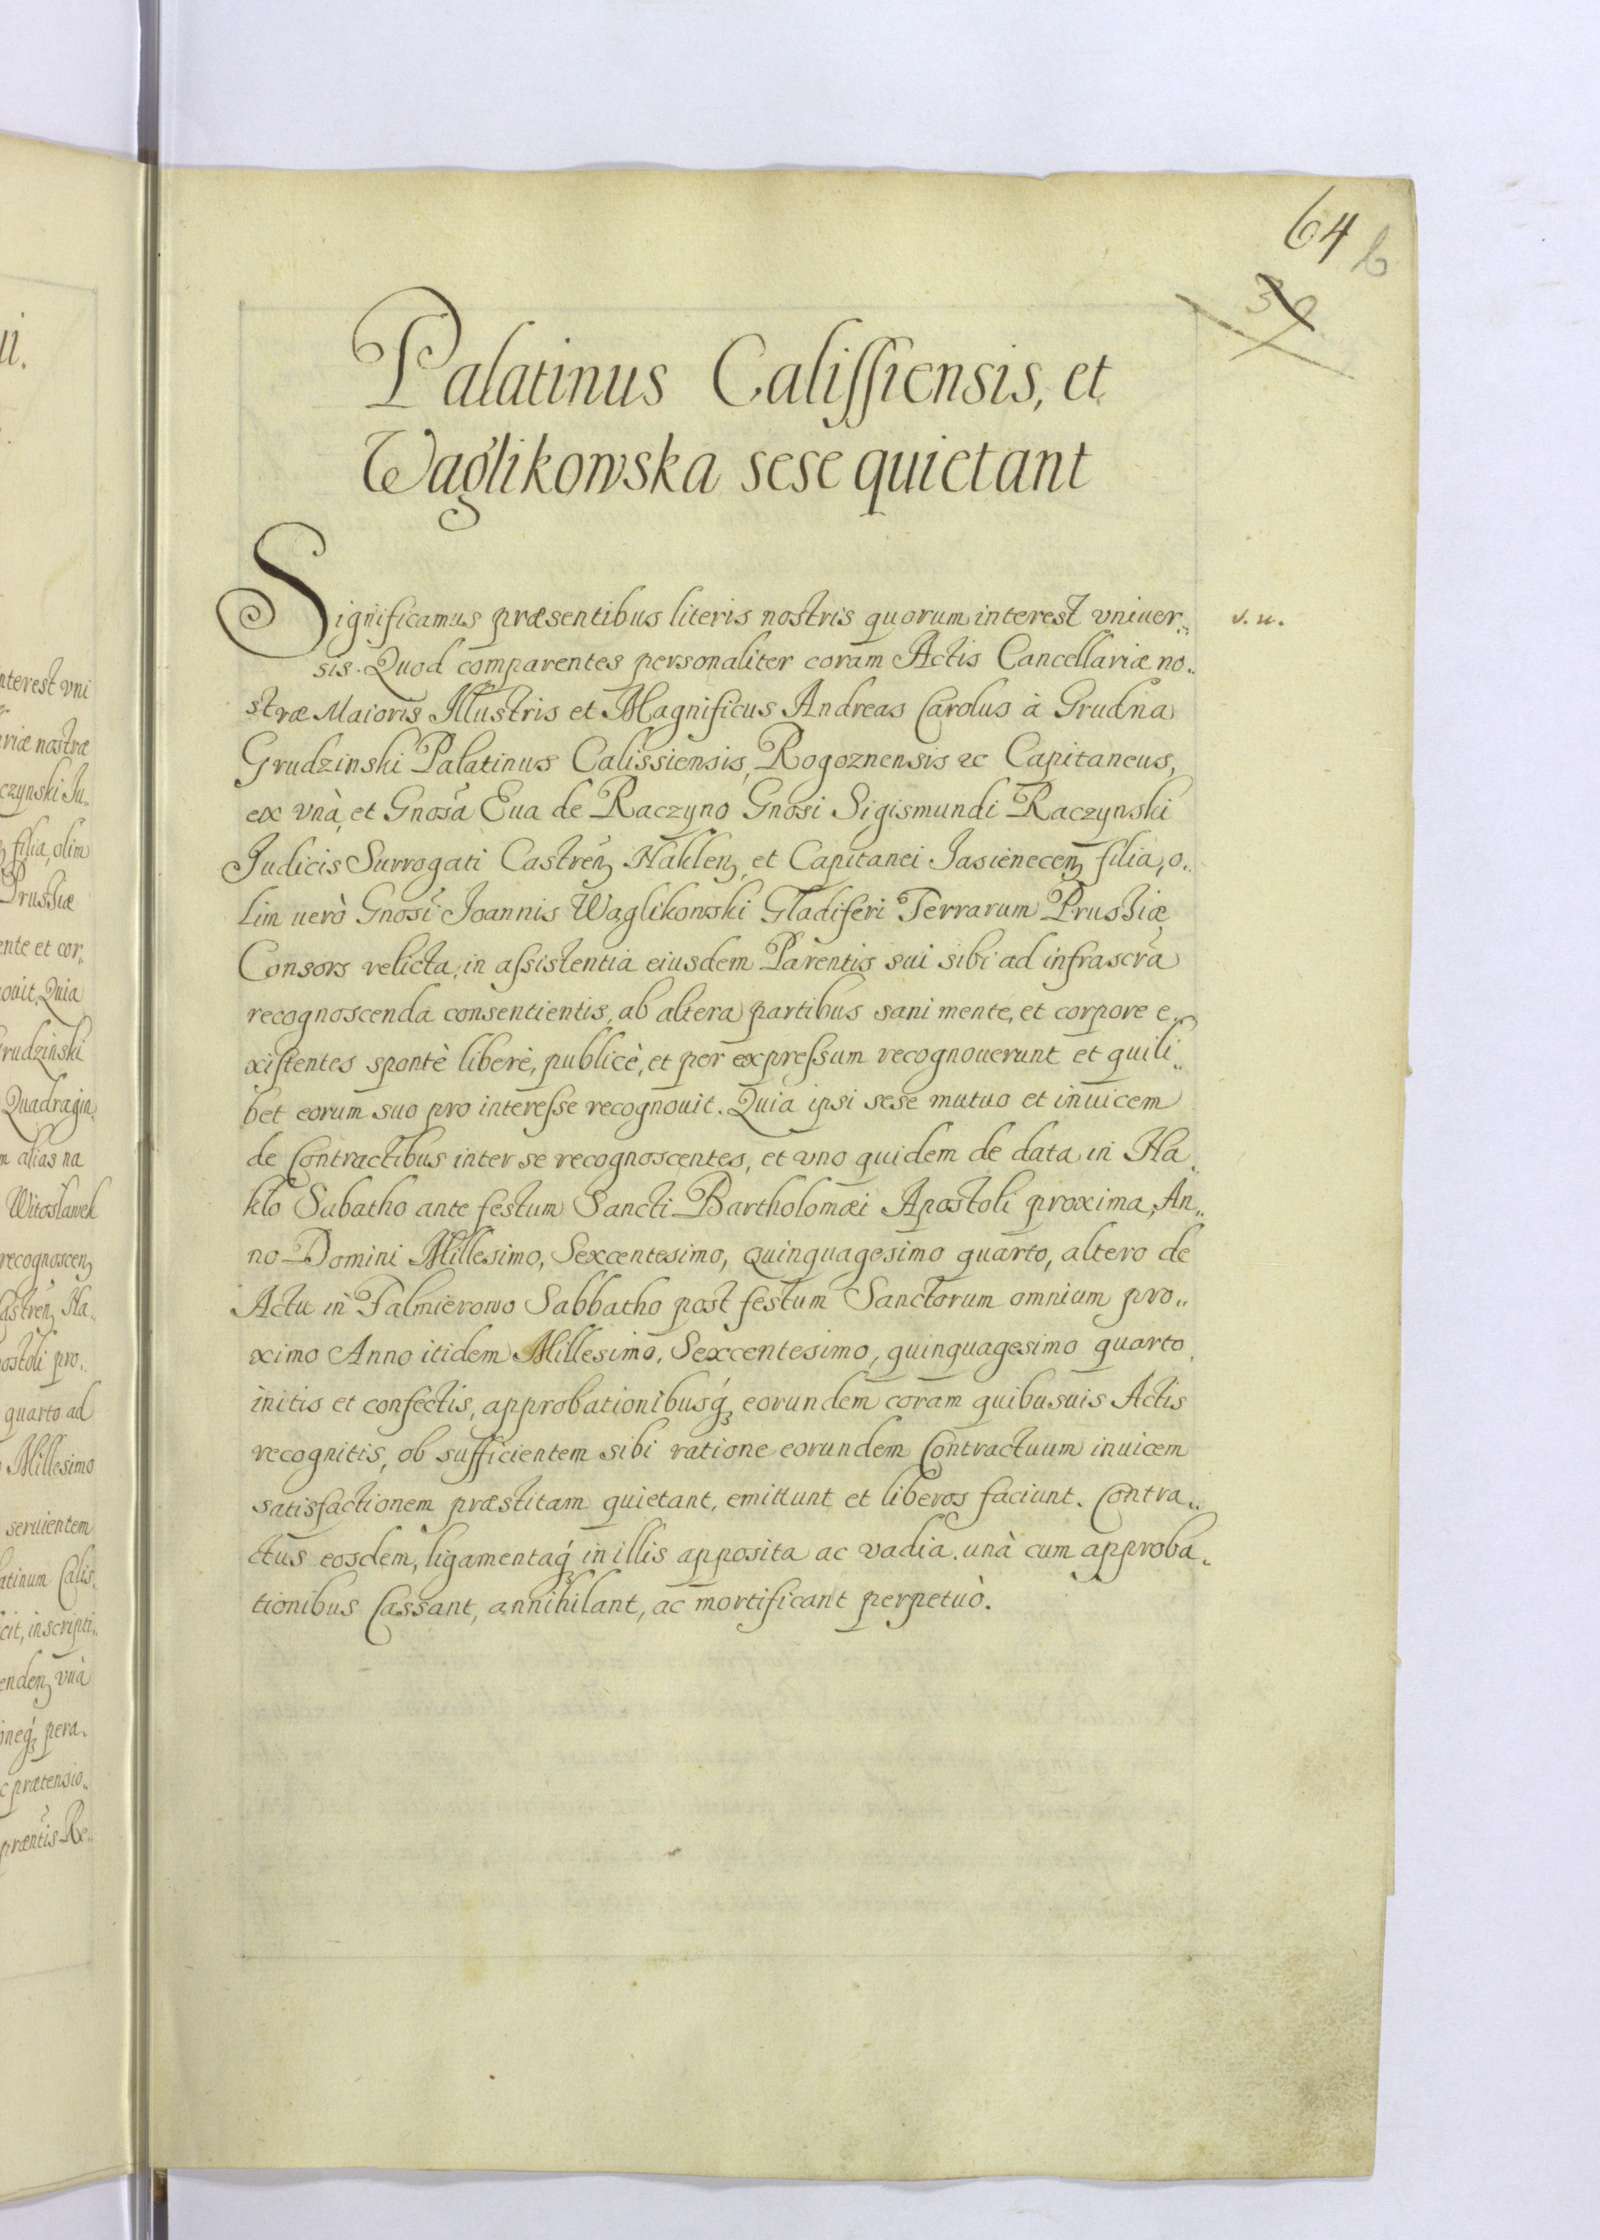 64
b
39
Palatinus Calissiensis, et
Waglikowska sese quietant
Significamus præsentibus literis nostris quorum interest vniuer„
v. u.
sis. Quod comparentes personaliter coram Actis Cancellariæ no„
stræ Maioris Illustris et Magnificus Andreas Carolus à Grudna
Grudzinski Palatinus Calissiensis, Rogoznensis &c Capitaneus,
ex vnà, et Gnosa Eua de Raczyno Gnosi Sigismundi Raczynski
Judicis Surrogati Castreñ Naklen, et Capitanei Jasienecen filia, o„
lim uerò Gnosi Joannis Waglikowski Gladiferi Terrarum Prussiæ
Consors relicta, in assistentia eiusdem Parentis sui sibi ad infrascra
recognoscenda consentientis, ab altera partibus sani mente, et corpore e„
xistentes spontè liberè, publicè, et per expressum recognouerunt et quili„
bet eorum suo pro interesse recognouit. Quia ipsi sese mutuo et inuicem
de Contractibus inter se recognoscentes, et vno quidem de data in Na„
klo Sabatho ante festum Sancti Bartholomæi Apostoli proxima, An„
no Domini Millesimo, Sexcentesimo, quinquagesimo quarto, altero de
Actu in Falmierowo Sabbatho post festum Sanctorum omnium pro„
ximo Anno itidem Millesimo, Sexcentesimo, quinquagesimo quarto
initis et confectis, approbationibusq́ꝫ eorundem coram quibusuis Actis
recognitis, ob sufficientem sibi ratione eorundem Contractuum inuicem
satisfactionem præstitam quietant, emittunt et liberos faciunt. Contra„
ctus eosdem, ligamentaq́ꝫ in illis apposita ac vadia unà cum approba„
tionibus Cassant, annihilant, ac mortificant perpetuò.